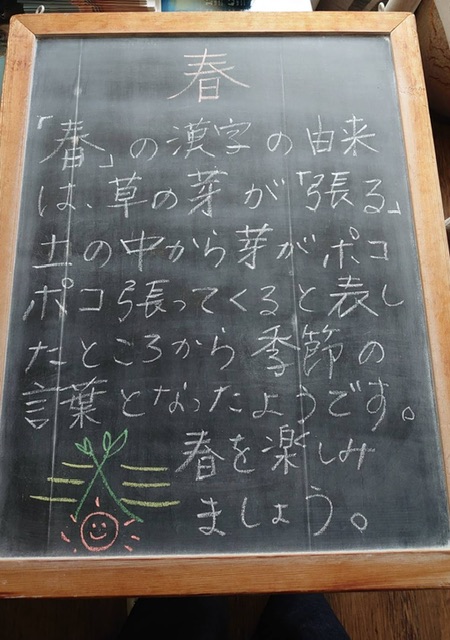 春
「春」の漢字の由来
は、草の芽が「張る」
土の中から芽がポコ
ポコ張ってくると表し
たところから季節の
言葉となったようです。
春を楽しみ
ましょう。